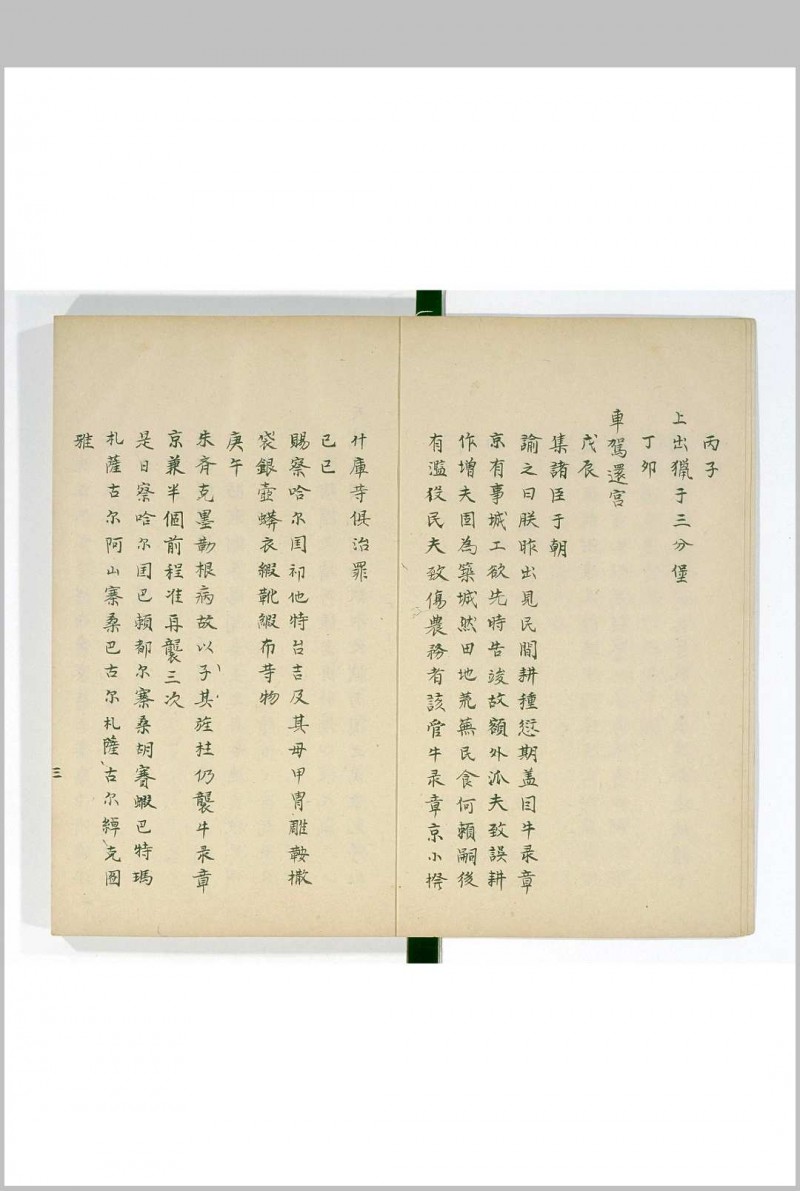 丙子
上出獵于三分堡
丁夘
車駕還宮
戊辰
集諸臣于朝
諭之曰朕昨出見民間耕種愆期盖因牛录章
京有事城工欲先時告竣故額外派夫致誤耕
作增夫固為築城然田地荒蕪民食何賴嗣後
有濫役民夫致傷農務者該管牛录章京小撥
什庫等俱治罪
己巳
賜察哈尔国初他特台吉及其毋甲冑雕鞍撒
袋銀壺蟒衣緞靴緞布等物
庚午
朱斉克墨勒根病故以子其旌柱仍襲牛录章
京兼半個前程准再襲三次
是日察哈尔国巴賴都尔寨桑胡賽蝦巴特瑪
札薩古尔阿山寨桑巴古尔札薩古尔綽克圖
雅
三